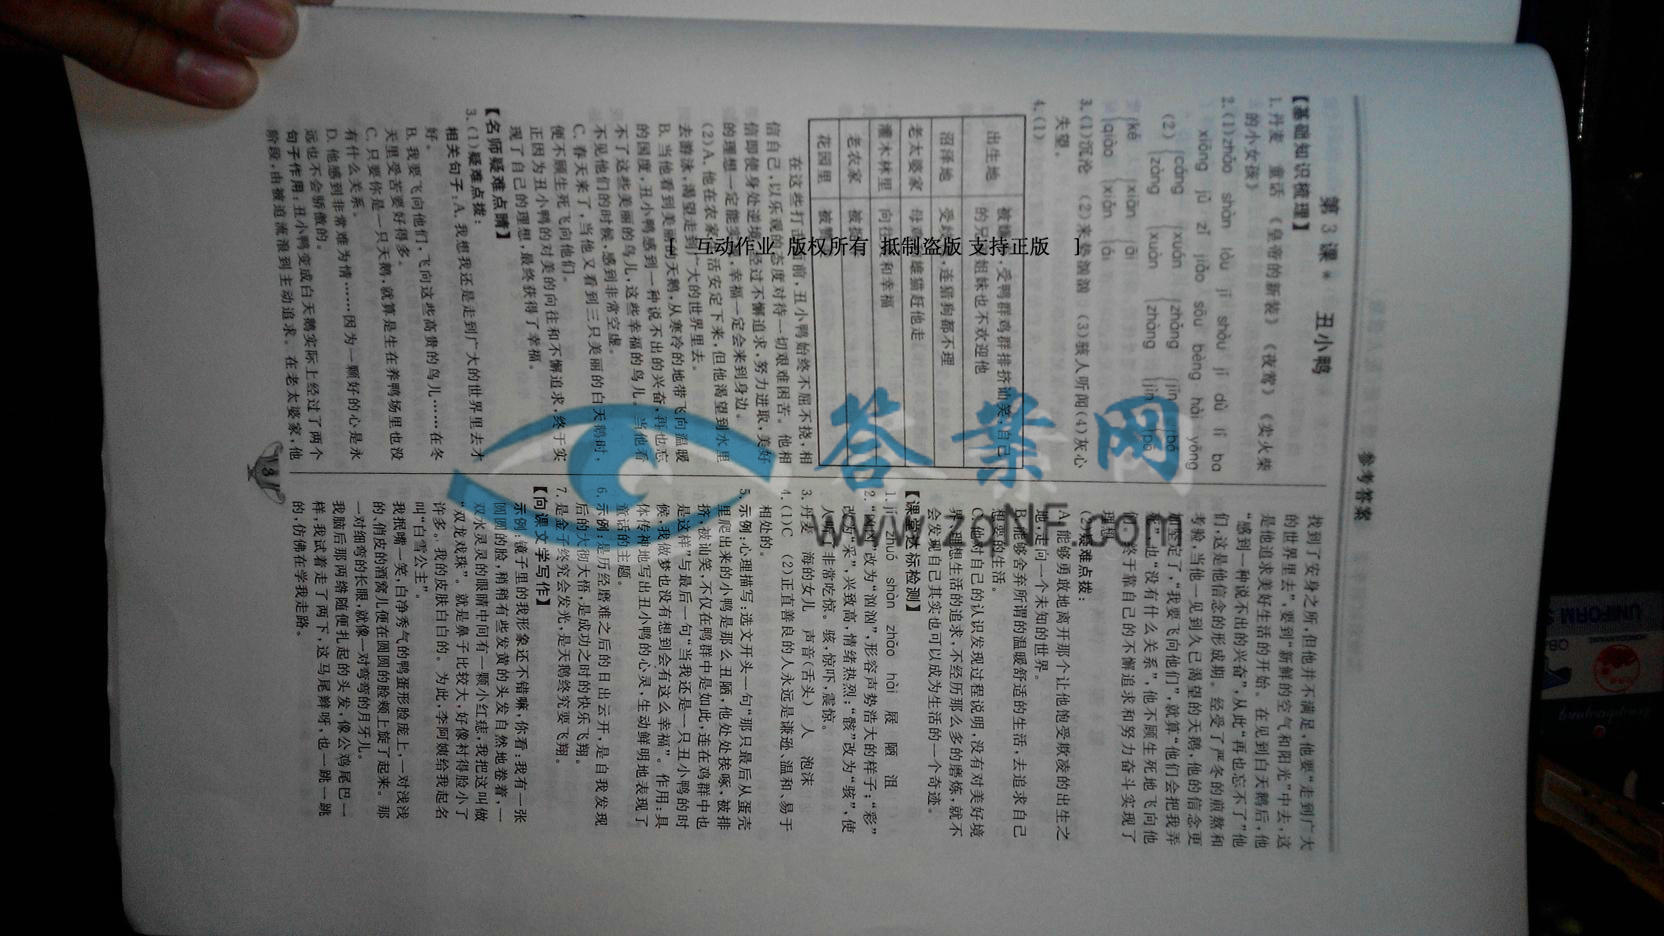 参考答案
第3课* 丑小鸭
【基础知识梳理】
1. 丹麦 童话 《皇帝的新装》《夜莺》《卖火柴
的小女孩》
2. (1)zhǎo shàn lòu jī shòu jī dù lǐ ba
xiōng jǔ zǐ jiǎo sōu bèng hài yōng
(2)
3. (1)沉沦 (2)来势汹汹 (3)骇人听闻 (4)灰心
失望。
4. (1)
出生地
沼泽地
老太婆家
灌木林里
老农家
花园里
连猎狗都不理
向往
和幸福
在这些打击面前,丑小鸭始终不屈不挠,相
信自己,以乐观的态度对待一切艰难困苦。他相
信即使身处逆境,经过不懈追求,努力进取,美好
的理想一定能实现,幸福一定会来到身边。
(2)A. 他在农家生活安定下来,但他渴望到水里
去游泳,渴望走到广大的世界里去。
B. 当他看到美丽的天鹅,从寒冷的地带飞向温暖
的国度,丑小鸭感到一种说不出的兴奋,再也忘
不了这些美丽的鸟儿,这些幸福的鸟儿。当他看
不见他们的时候,感到非常空虚。
C. 春天来了,当他又看到三只美丽的白天鹅时,
便不顾生死飞向他们。
正因为丑小鸭的对美的向往和不懈追求,终于实
现了自己的理想,最终获得了幸福。
【名师疑难点睛】
3. (1)疑难点拨:
相关句子:A. 我想我还是走到广大的世界里去才
好。
B. 我要飞向他们,飞向这些高贵的鸟儿……在冬
天里受苦要好得多。
C. 只要你是一只天鹅蛋,就算是生在养鸭场里也没
有什么关系。
D. 他感到非常难为情……因为一颗好的心是永
远也不会骄傲的。
句子作用:丑小鸭变成白天鹅实际上经过了两个
阶段,由被迫流浪到主动追求。在老太婆家,他
找到了安身之所,但他并不满足,他要“走到广大
的世界里去”,要到“新鲜的空气和阳光”中去,这
是他追求美好生活的开始。在见到白天鹅后,他
“感到一种说不出的兴奋”,从此“再也忘不了”他
们,这是他信念的形成期。经受了严冬的煎熬和
考验,当他一见到久已渴望的天鹅,他的信念更
加坚定了,“我要飞向他们”,就算“他们会把我弄
死”,也“没有什么关系”,他不顾生死地飞向他
们,终于靠自己的不懈追求和努力奋斗实现了
理想。
(2)疑难点拨:
A. 能够勇敢地离开那个让他饱受欺凌的出生之
地,走向一个未知的世界。
B. 能够舍弃所谓的温暖舒适的生活,去追求自己
想要的生活。
C. 他对自己的认识发现过程说明,没有对美好境
界、理想生活的追求,不经历那么多的磨炼,就不
会发现自己其实也可以成为生活的一个奇迹。
【课堂达标检测】
1. jī zhuó shàn zhāo hài 屐 陋 沮
2. “凶凶”改为“汹汹”,形容声势浩大的样子;“彩”
改为“采”,兴致高,情绪热烈;“骸”改为“骇”,使
人听了非常吃惊。骇,惊吓,震惊。
3. 丹麦 海的女儿 声音(舌头) 人 泡沫
4. (1)C (2)正直善良的人永远是谦逊、温和、易于
相处的。
5. 示例:心理描写:选文开头一句“那只最后从蛋壳
里爬出来的小鸭是那么丑陋,他处处挨啄,被排
挤,被讪笑,不仅在鸭群中是如此,连在鸡群中也
是这样”与最后一句“当我还是一只丑小鸭的时
候,我做梦也没有想到会有这么幸福”。作用:具
体传神地写出丑小鸭的心灵,生动鲜明地表现了
童话的主题。
6. 示例:是历经磨难之后的日出云开,是自我发现
后的大彻大悟,是成功之时的快乐飞翔。
7. 是金子终究会发光,是天鹅终究要飞翔。
【向课文学写作】
示例:镜子里的我形象还不错嘛,你看:我有一张
圆圆的脸,稍稍有些发黄的头发自然地卷着,一
双水灵灵的眼睛中间有一颗小红痣,我把这叫做
“双龙戏珠”。就是鼻子比较大,好像衬得脸小了
许多。我的皮肤白白的。为此,李阿姨给我起名
叫“白雪公主”。
我抿嘴一笑,白净秀气的鸭蛋形脸庞上,一对浅浅
的、俏皮的酒窝儿便在圆圆的脸颊上旋了起来。那
一对细弯的长眼,就像一对弯弯的月牙儿。
我脑后那两绺随便扎起的头发,像公鸡尾巴一
样,我试着走了两下,这马尾辫呀,也一跳一跳
的,仿佛在学我走路。
3
[ 互动作业 版权所有 抵制盗版 支持正版 ]
答案网
www.zqnf.com
UNIFORM